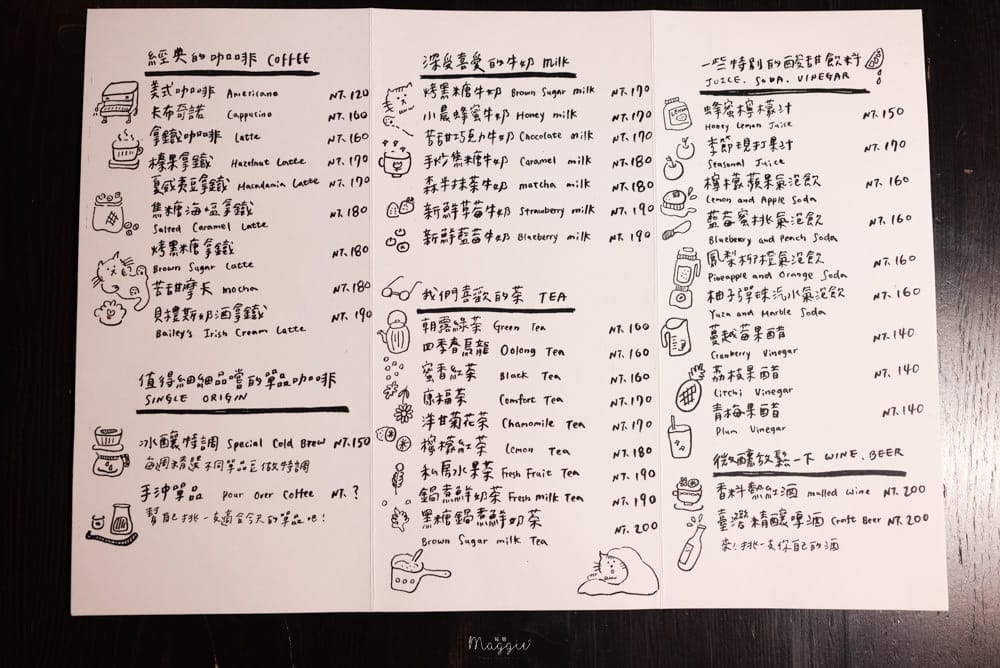 經典的咖啡 COFFEE
美式咖啡 Americano NT.120
卡布奇諾 Cappucino NT.160
拿鐵咖啡 Latte NT.160
榛果拿鐵 Hazelnut Latte NT.170
夏威夷豆拿鐵 Macadamia Latte NT.170
焦糖海塩拿鐵 NT.180
Salted Caramel Latte
烤黑糖拿鐵 NT.180
Brown Sugar Latte
苦甜摩卡 mocha NT.180
貝禮斯奶酒拿鐵 NT.190
Bailey's Irish Cream Latte
值得細細品嚐的單品咖啡
SINGLE ORIGIN
冰釀特調 Special Cold Brew NT.150
每週精選不同單品豆做特調
手沖單品 Pour Over Coffee NT.?
幫自己挑一支適合今天的單品吧!
深受喜愛的牛奶 milk
烤黑糖牛奶 Brown Sugar milk NT.170
小晨蜂蜜牛奶 Honey milk NT.170
苦甜巧克力牛奶 Chocolate milk NT.170
手炒焦糖牛奶 Caramel milk NT.180
森半抹茶牛奶 matcha milk NT.180
新鮮草莓牛奶 Strawberry milk NT.190
新鮮藍莓牛奶 Blueberry milk NT.190
我們喜歡的茶 TEA
朝露綠茶 Green Tea NT.160
四季春烏龍 Oolong Tea NT.160
蜜香紅茶 Black Tea NT.160
康福茶 Comfort Tea NT.170
洋甘菊花茶 Chamomile Tea NT.170
檸檬紅茶 Lemon Tea NT.180
私房水果茶 Fresh Fruit Tea NT.190
鍋煮鮮奶茶 Fresh milk Tea NT.190
黑糖鍋煮鮮奶茶 NT.200
Brown Sugar milk Tea
一些特別的酸甜飲料
JUICE. SODA. VINEGAR
蜂蜜檸檬汁 NT.150
Honey Lemon Juice
季節現打果汁 NT.170
Seasonal Juice
檸檬蘋果氣泡飲 NT.160
Lemon and Apple Soda
藍莓蜜桃氣泡飲 NT.160
Blueberry and Peach Soda
鳳梨柳橙氣泡飲 NT.160
Pineapple and Orange Soda
柚子彈珠汽水氣泡飲 NT.160
Yuza and Marble Soda
蔓越莓果醋 NT.140
Cranberry Vinegar
荔枝果醋 NT.140
Litchi Vinegar
青梅果醋 NT.140
Plum Vinegar
微釀放鬆一下 WINE. BEER
香料熱紅酒 mulled Wine NT.200
臺灣精釀啤酒 Craft Beer NT.200
來!挑一支你自己的酒
Maggie